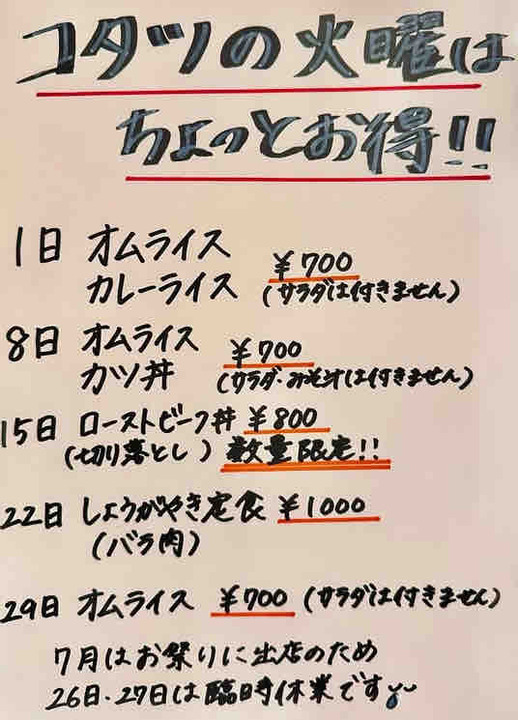 コタツの火曜は
ちょっとお得!!
1日 オムライス
カレーライス ¥700
(サラダは付きません)
8日 オムライス
カツ丼 ¥700
(サラダ・みそ汁は付きません)
15日 ローストビーフ丼 ¥800
(切り落とし) 数量限定!!
22日 しょうがやき定食 ¥1000
(バラ肉)
29日 オムライス ¥700 (サラダは付きません)
7月はお祭りに出店のため
26日・27日は臨時休業です